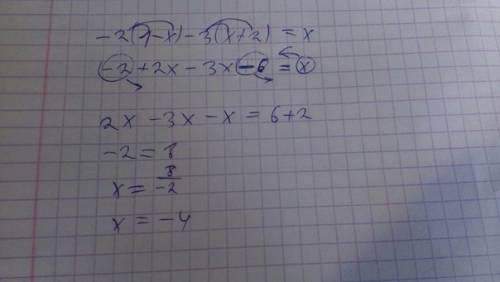 -2(1-x)-3(x+2)=x
-2+2x-3x-6=x
2x-3x-x=6+2
-2=8
x=8/-2
x=-4